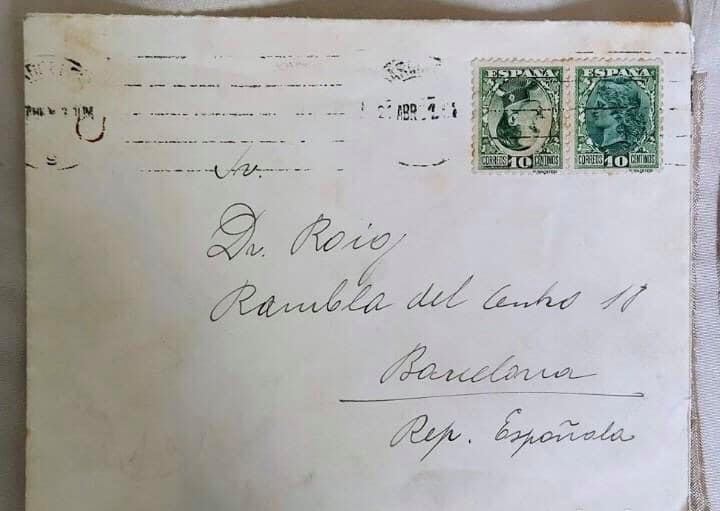 ESPAÑA ESPAÑA
ABR
CORREOS 10 CENTIMOS CORREOS 10 CENTIMOS
Sr.
Dr. Roig
Rambla del Centro 18
Barcelona
Rep. Española